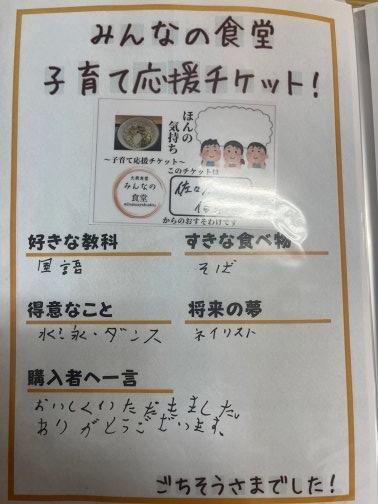 みんなの食堂
子育て応援チケット！
ほんの
気持ち
～子育て応援チケット～
このチケットは
大衆食堂
みんなの
食堂
minnasyokudou
佐々
からのおすそわけです
好きな教科
国語
すきな食べ物
そば
得意なこと
水泳・ダンス
将来の夢
ネイリスト
購入者へ一言
おいしくいただきました。
ありがとうございます。
ごちそうさまでした！